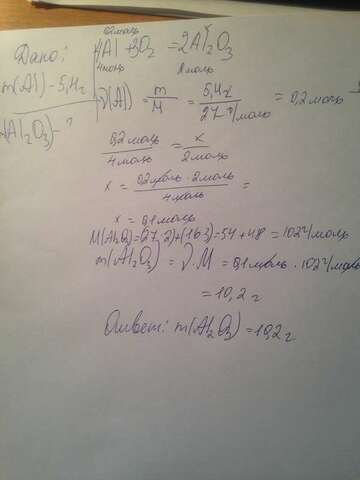 0,2моль х
Дано: 4Al + 3O₂ = 2Al₂O₃
4моль 2моль
m(Al) - 5,4г
ν(Al) = m/M = 5,4г / 27 г/моль = 0,2 моль
m(Al₂O₃) - ?
0,2 моль / 4 моль = x / 2 моль
x = 0,2 моль · 2 моль / 4 моль =
x = 0,1 моль
M(Al₂O₃) = (27·2)+(16·3) = 54 + 48 = 102 г/моль
m(Al₂O₃) = ν · M = 0,1 моль · 102 г/моль
= 10,2 г
Ответ: m(Al₂O₃) = 10,2 г